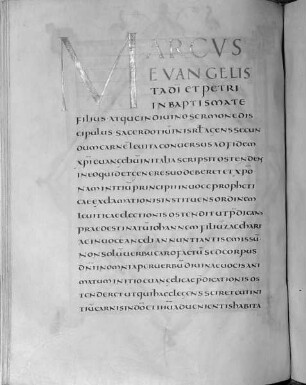 MARCUS
EVANGELIS
TA DI ET PETRI
IN BAPTISMATE
FILIUS ATQUE IN DIVINO SERMONE DIS
CIPULUS SACERDOTIUM IN ISRL AGENS SECUN
DUM CARNE LEVITA CONVERSUS AD FIDEM
XPI EUANG IN ITALIA SCRIPSIT OSTENDENS
IN EO QUID ET GENERE SUO DEBERET ET XPO
NAM INITIU PRINCIPII IN VOCE PROPHETI
CAE EXCLAMATIONIS INSTITUENS ORDINEM
LEVITICAE LECTIONIS OSTENDIT UT PDICANS
PRAEDESTINATU IOHANNEM FILIU ZACHARI
AE IN VOCE ANGELI ANNUNTIANTIS EMISSU
NON SOLU VERBU CARO FACTU SED CORPUS
DNI IN OMNIA PER VERBU DIVINAE VOCIS ANI
MATUM INITIO EUANGELICAE PDICATIONIS OS
TENDERET UT QUI HAEC LEGENS SCIRET CUI INI
TIU CARNIS IN DO ET IHU ADVENIENTIS HABITA